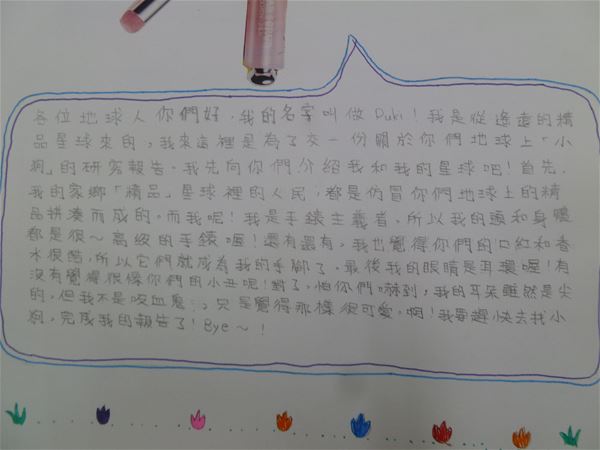 各位地球人你們好，我的名字叫做Duki！我是從遙遠的精
品星球來的，我來這裡是為了交一份關於你們地球上「小
狗」的研究報告。我先向你們介紹我和我的星球吧！首先，
我的家鄉「精品」星球裡的人民，都是仿冒你們地球上的精
品拼湊而成的。而我呢！我是手錶主義者，所以我的頭和身體
都是很～高級的手錶喔！還有還有，我也覺得你們的口紅和香
水很酷，所以它們就成為我的手腳了。最後我的眼睛是耳環喔！有
沒有覺得很像你們的小丑呢！對了，怕你們嚇到，我的耳朵雖然是尖
的，但我不是吸血鬼：），只是覺得那樣很可愛。啊！我要趕快去找小
狗，完成我的報告了！Bye～！